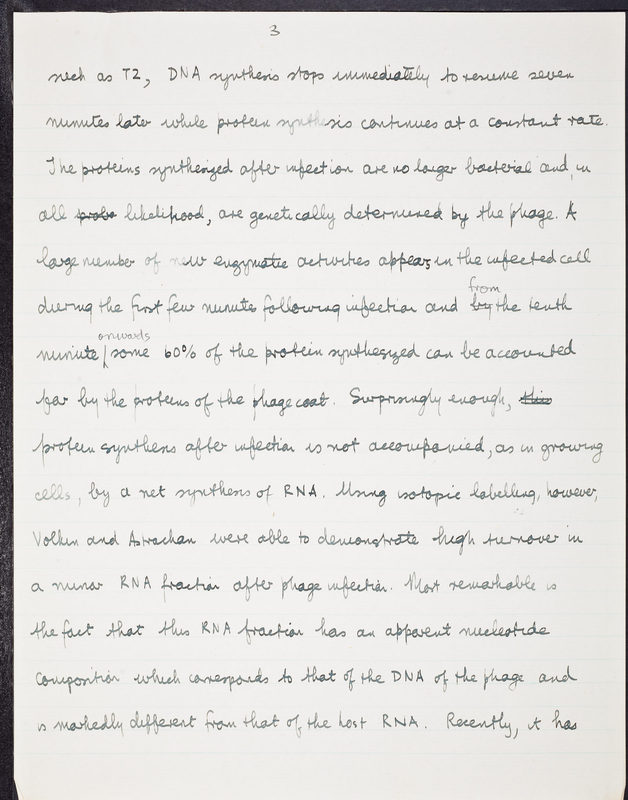 3
such as T2, DNA synthesis stops immediately to resume seven
minutes later while protein synthesis continues at a constant rate.
The proteins synthesized after infection are no longer bacterial and, in
all probo likelihood, are genetically determined by the phage. A
large number of new enzymatic activities appears in the infected cell
during the first few minutes following infection and by the tenth
from
minute some 60% of the protein synthesized can be accounted
onwards
for by the proteins of the phage coat. Surprisingly enough, this
protein synthesis after infection is not accompanied, as in growing
cells, by a net synthesis of RNA. Using isotopic labelling, however,
Volkin and Astrachan were able to demonstrate high turnover in
a minor RNA fraction after phage infection. Most remarkable is
the fact that this RNA fraction has an apparent nucleotide
composition which corresponds to that of the DNA of the phage and
is markedly different from that of the host RNA. Recently, it has